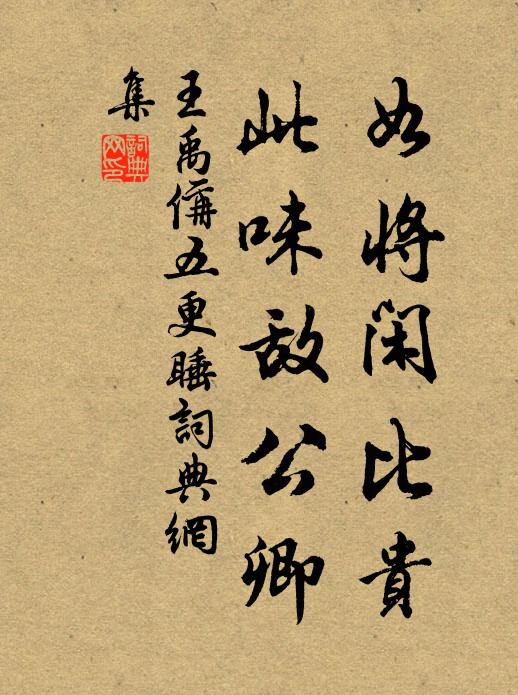 如將閑比貴
此味敵公卿
王禹偁五更睡詞典網
集
詞典
网印